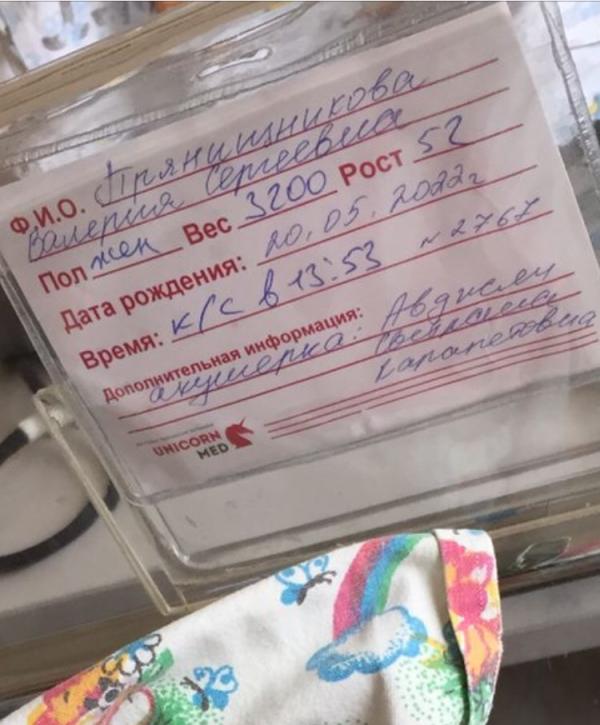 Ф.И.О. Прянишникова
Валерия Сергеевна
Пол жен Вес 3200 Рост 52
Дата рождения: 20.05.2022г
Время: к/с в 13:53 N 2767
Дополнительная информация:
акушерка: Авджсян
Карапетовна
UNICORN
MED